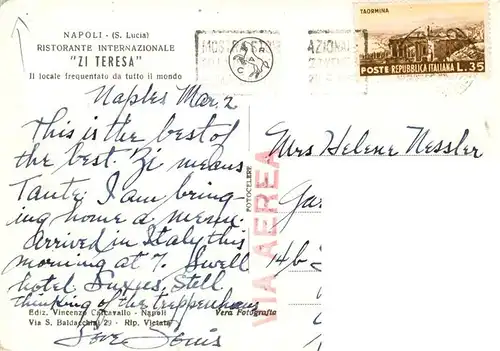 NAPOLI - (S. Lucia)
RISTORANTE INTERNAZIONALE
"ZI TERESA"
Il locale frequentato da tutto il mondo
TAORMINA
POSTE REPUBBLICA ITALIANA L. 35
Naples Mar. 2
This is the best of
the best. Zi means
Tante. I am bring-
ing home a menu.
Arrived in Italy this
morning at 7. Swell
hotel. Still
thinking of the treppenhaus
Love
Mrs Helene Nessler
Gar
14b
VIA AEREA
FOTOCELERE
Ediz. Vincenzo Carcavallo - Napoli
Via S. Baldacchini 29 - Rip. Vietata
Vera Fotografia